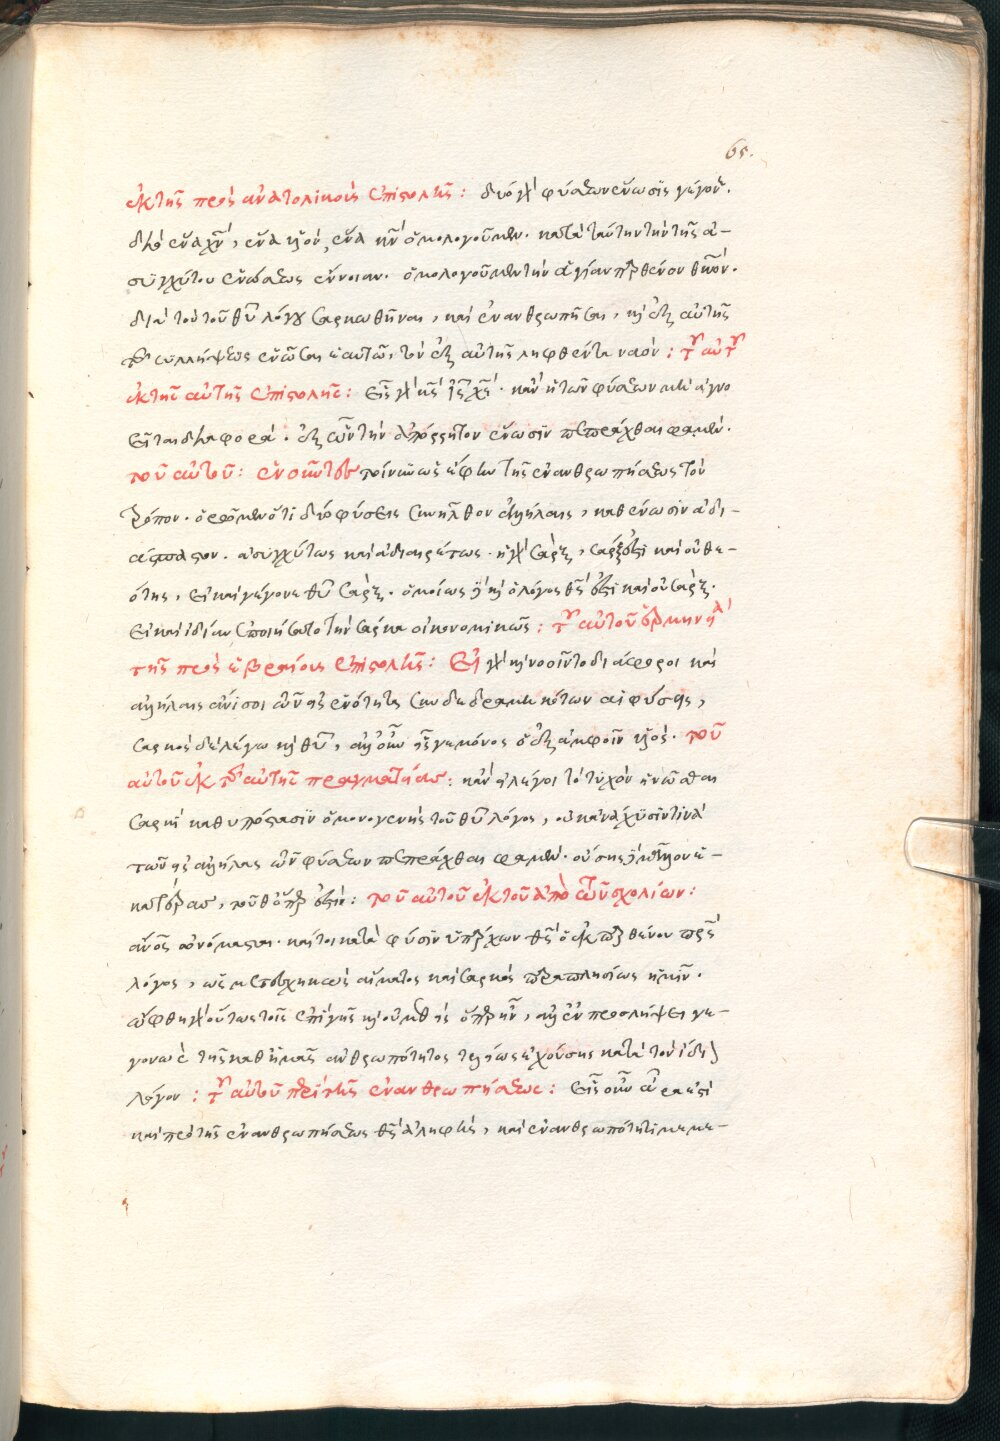 65.
ἐκ τῆς πρὸς ἀνατολικοὺς ἐπιστολῆς: δύο γὰρ φύσεων ἕνωσις γέγονε.
διὸ ἕνα χν, ἕνα υἱόν, ἕνα κν ὁμολογοῦμεν. κατὰ ταύτην τὴν τῆς ἀ-
συγχύτου ἑνώσεως ἔννοιαν. ὁμολογοῦμεν τὴν ἁγίαν πρθένον θκον.
διὰ τὸ τὸν θν λόγον σαρκωθῆναι, καὶ ἐνανθρωπῆσαι, καὶ ἐξ αὐτῆς
τῆς συλλήψεως ἑνῶσαι ἑαυτῶ, τὸν ἐξ αὐτῆς ληφθέντα ναόν: τοῦ αὐτοῦ
ἐκ τῆς αὐτῆς ἐπιστολῆς: εἷς γὰρ κς ις χς. κἂν ἡ τῶν φύσεων μὴ ἀγνο
εῖται διαφορά. ἐξ ὧν τὴν ἀπόρρητον ἕνωσιν πεπρᾶχθαι φαμέν.
τοῦ αὐτοῦ: ἐννοοῦντες τοίνυν ὡς ἔφην τῆς ἐνανθρωπήσεως τὸν
τρόπον. ὁρῶμεν ὅτι δύο φύσεις συνῆλθον ἀλλήλαις, καθ' ἕνωσιν ἀδι-
άσπαστον. ἀσυγχύτως καὶ ἀδιαιρέτως. ἡ γὰρ σὰρξ, σάρξ ἐστι καὶ οὐ θε-
ότης, εἰ καὶ γέγονε θυ σάρξ. ὁμοίως δὲ καὶ ὁ λόγος θς ἐστι καὶ οὐ σάρξ.
εἰ καὶ ἰδίαν ἐποιήσατο τὴν σάρκα οἰκονομικῶς: τοῦ αὐτοῦ ἑρμηνεία
τῆς πρὸς ἑβραίους ἐπιστολῆς: Εἰ γὰρ καὶ νοοῖντο διάφοροι καὶ
ἀλλήλαις ἄνισοι τῶν εἰς ἑνότητα συνδεδραμηκότων αἱ φύσεις,
σαρκὸς δὲ λέγω καὶ θυ, ἀλλ' οὖν εἷς γε μόνος ὁ ἐξ ἀμφοῖν υἱός. τοῦ
αὐτοῦ ἐκ τῆς αὐτῆς πραγματείας: κἂν εἰ λέγοι τὸ τυχὸν ἑνῶσθαι
σαρκὶ καθ' υπόστασιν ὁ μονογενὴς τοῦ θυ λόγος, οὐκ ἀνάχυσίν τινὰ
τῶν εἰς ἀλλήλας τῶν φύσεων πεπρᾶχθαι φαμέν. οὔσης δὲ μᾶλλον ἑ-
κατέρας, τοῦθ' ὅπερ ἐστί: τοῦ αὐτοῦ ἐκ τοῦ ἀπὸ τῶν σχολίων:
ανος ὠνόμασται. καίτοι κατὰ φύσιν ὑπάρχων θς ὁ ἐκ πρς
λόγος, ὡς μετεσχηκὼς αἵματος καὶ σαρκὸς παραπλησίως ἡμῖν.
ὤφθη γὰρ οὕτως τοῖς ἐπὶ γῆς καὶ οὐ μεθεὶς ὅπερ ἦν, ἀλλ' ἐν προσλήψει γε-
γονὼς τῆς καθ' ἡμᾶς ἀνθρωπότητος τελείως ἐχούσης κατὰ τὸν ἴδιον
λόγον: τοῦ αὐτοῦ περὶ τῆς ἐνανθρωπήσεως: εἷς οὖν ἄρα ἐστὶ
καὶ πρὸ τῆς ἐνανθρωπήσεως θς ἀληθὴς, καὶ ἐν ἀνθρωπότητι μεμε-